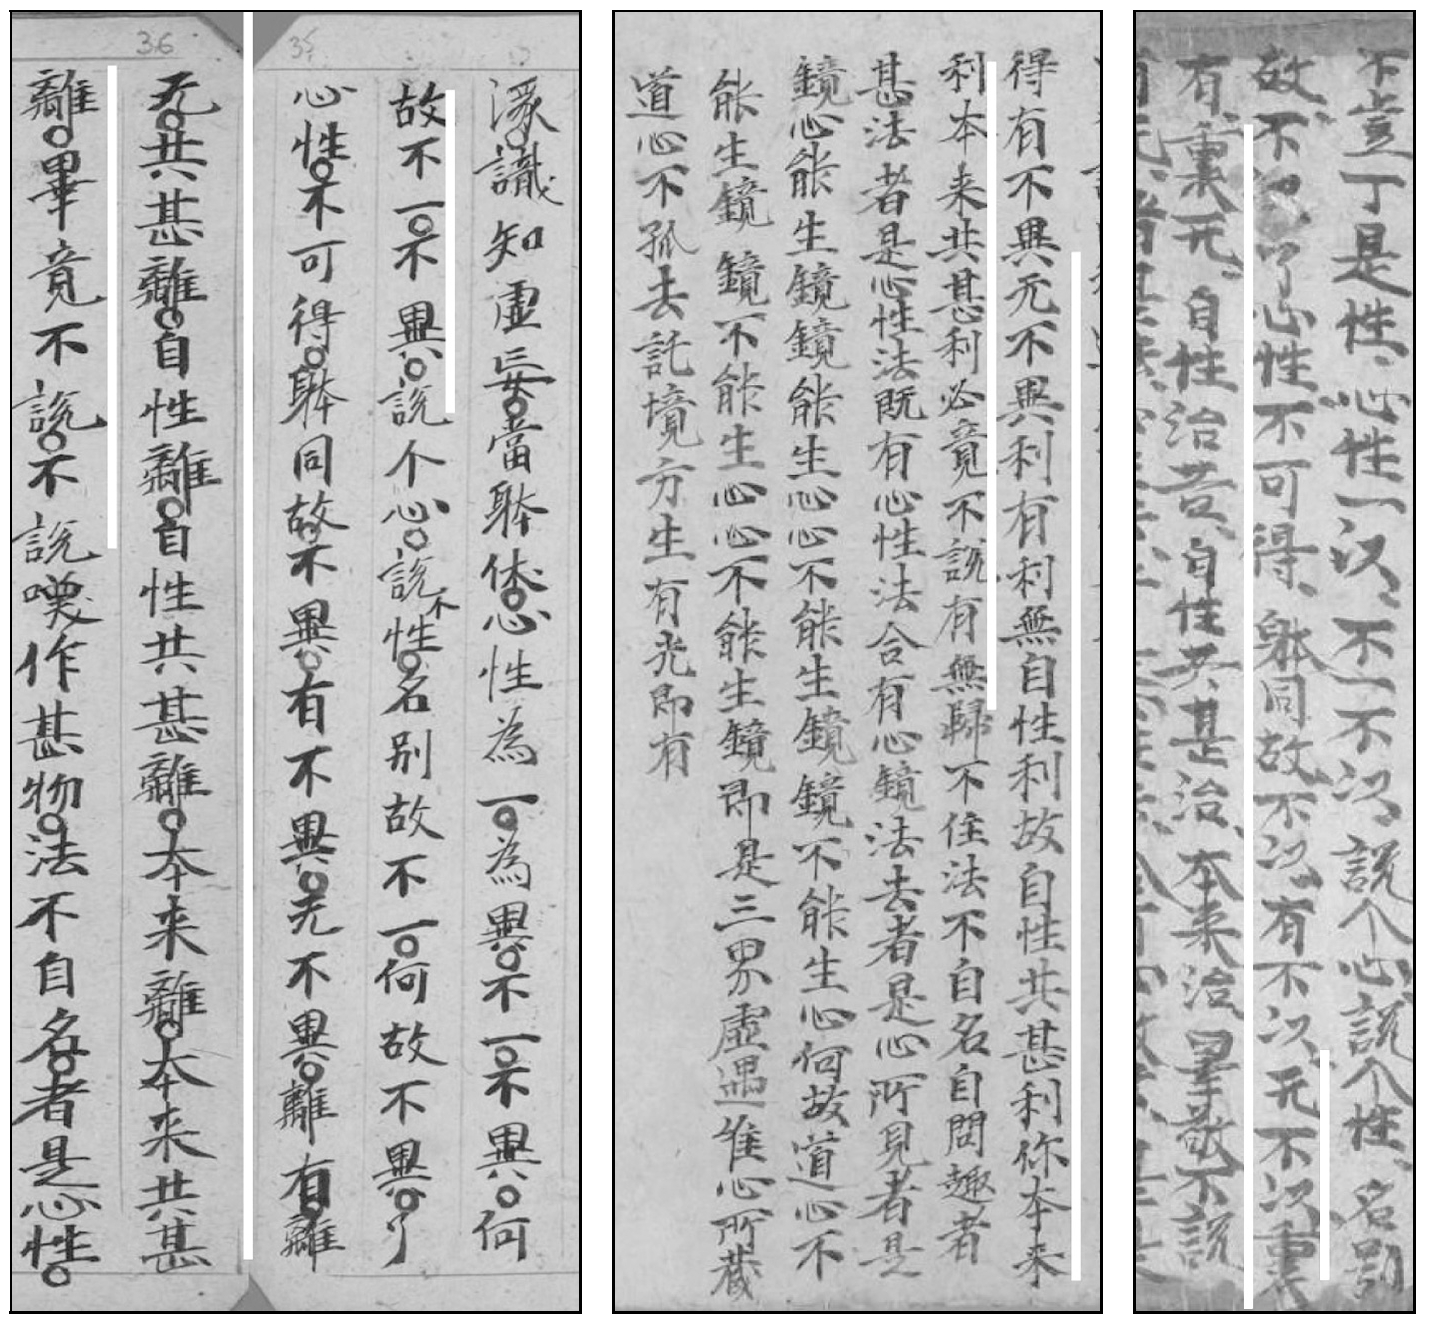 36
35
識知虛妄當躰体心性為一為異不一不異何
故不一不異說个心說不性名别故不一何故不異了
心性不可得躰同故不異有不異无不異離有離
无共甚離自性離自性共甚離本来離本来共甚
離畢竟不說不說嘆作甚物法不自名者是心性
得有不異无不異利有利無自性利故自性共甚利你本来
利本来共甚利必竟不說有無歸不住法不自名自問趣者
甚法者是心性法既有心性法合有心鏡法去者是心所見者是
鏡心能生鏡鏡能生心心不能生鏡鏡不能生心何故道心不
能生鏡鏡不能生心心不能生鏡即是三界虛遇惟心所藏
道心不孤去託境方生有光即有
不豈丁是性心性一汉不一不汉說个心說个性名别
故不了心性不可得躰同故不汉有不汉无不汉裏
有裏无自性治自性共甚治本来治畢敬不說